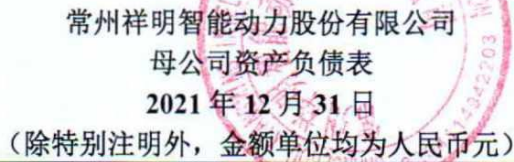 常州祥明智能动力股份有限公司
母公司资产负债表
2021 年 12 月 31 日
（除特别注明外，金额单位均为人民币元）